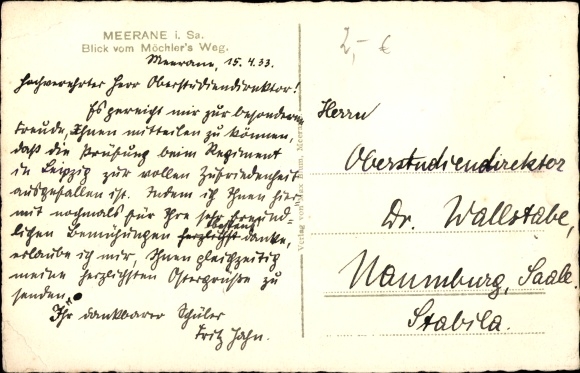 MEERANE i. Sa.
Blick vom Möchler's Weg.
Meerane, 15.4.33.
Hochverehrter Herr Oberstudiendirektor!
Es gereicht mir zur besonderen
Freude, Ihnen mitteilen zu können,
daß die Prüfung beim Regiment
in Leipzig zur vollen Zufriedenheit
ausgefallen ist. Indem ich Ihnen hier
mit nochmals für Ihre sehr freund
lichen Bemühungen herzlichst danke,
erlaube ich mir, Ihnen gleichzeitig
meine herzlichsten Ostergrüße zu
senden.
Ihr dankbarer Schüler
Fritz Jahn.
Verlag von Max Blum, Meerane
2,- €
Herrn
Oberstudiendirektor
Dr. Wallstabe,
Naumburg, Saale.
Stabila.